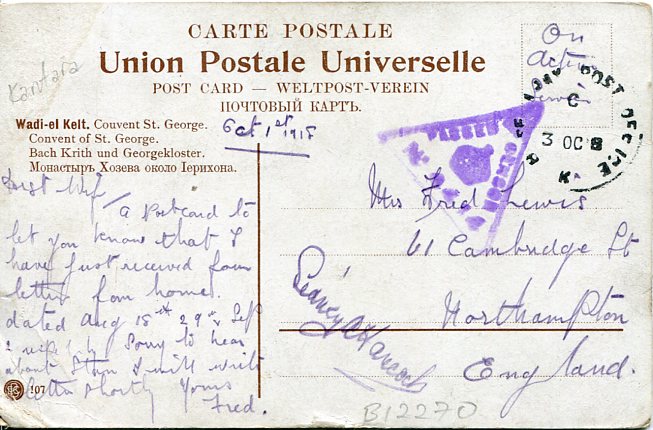 CARTE POSTALE
Union Postale Universelle
POST CARD — WELTPOST-VEREIN
ПОЧТОВЫЙ КАРТЪ.
Kantara
Wadi-el Kelt. Couvent St. George.
Convent of St. George.
Bach Krith und Georgekloster.
Монастыръ Хозева около Іерихона.
Oct 1st 1918
On
Active
Service
ARMY POST OFFICE
C
3 OC 8
PASSED
CENSOR
A Postcard to
let you know that I
have just received four
letters from home.
dated Aug 18th 29th Sep
Sorry to hear
about Stan I will write
letter shortly Yours
Fred.
Mrs Fred Lewis
61 Cambridge St
Northampton
England.
Sidney A Hancock
107
B12270